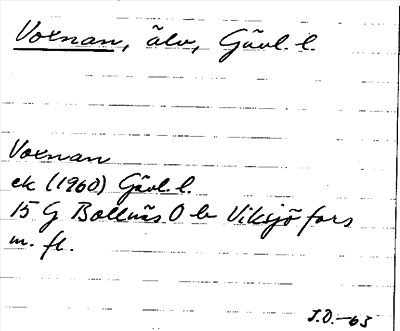 Voxnan, älv, Gävl. l.
Voxnan
ek (1960) Gävl. l.
15 G Bollnäs O b Viksjöfors
m. fl.
J.O.-63